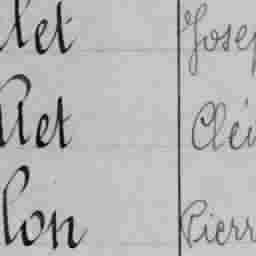 let Josep
llet Cléi
lon Pierr